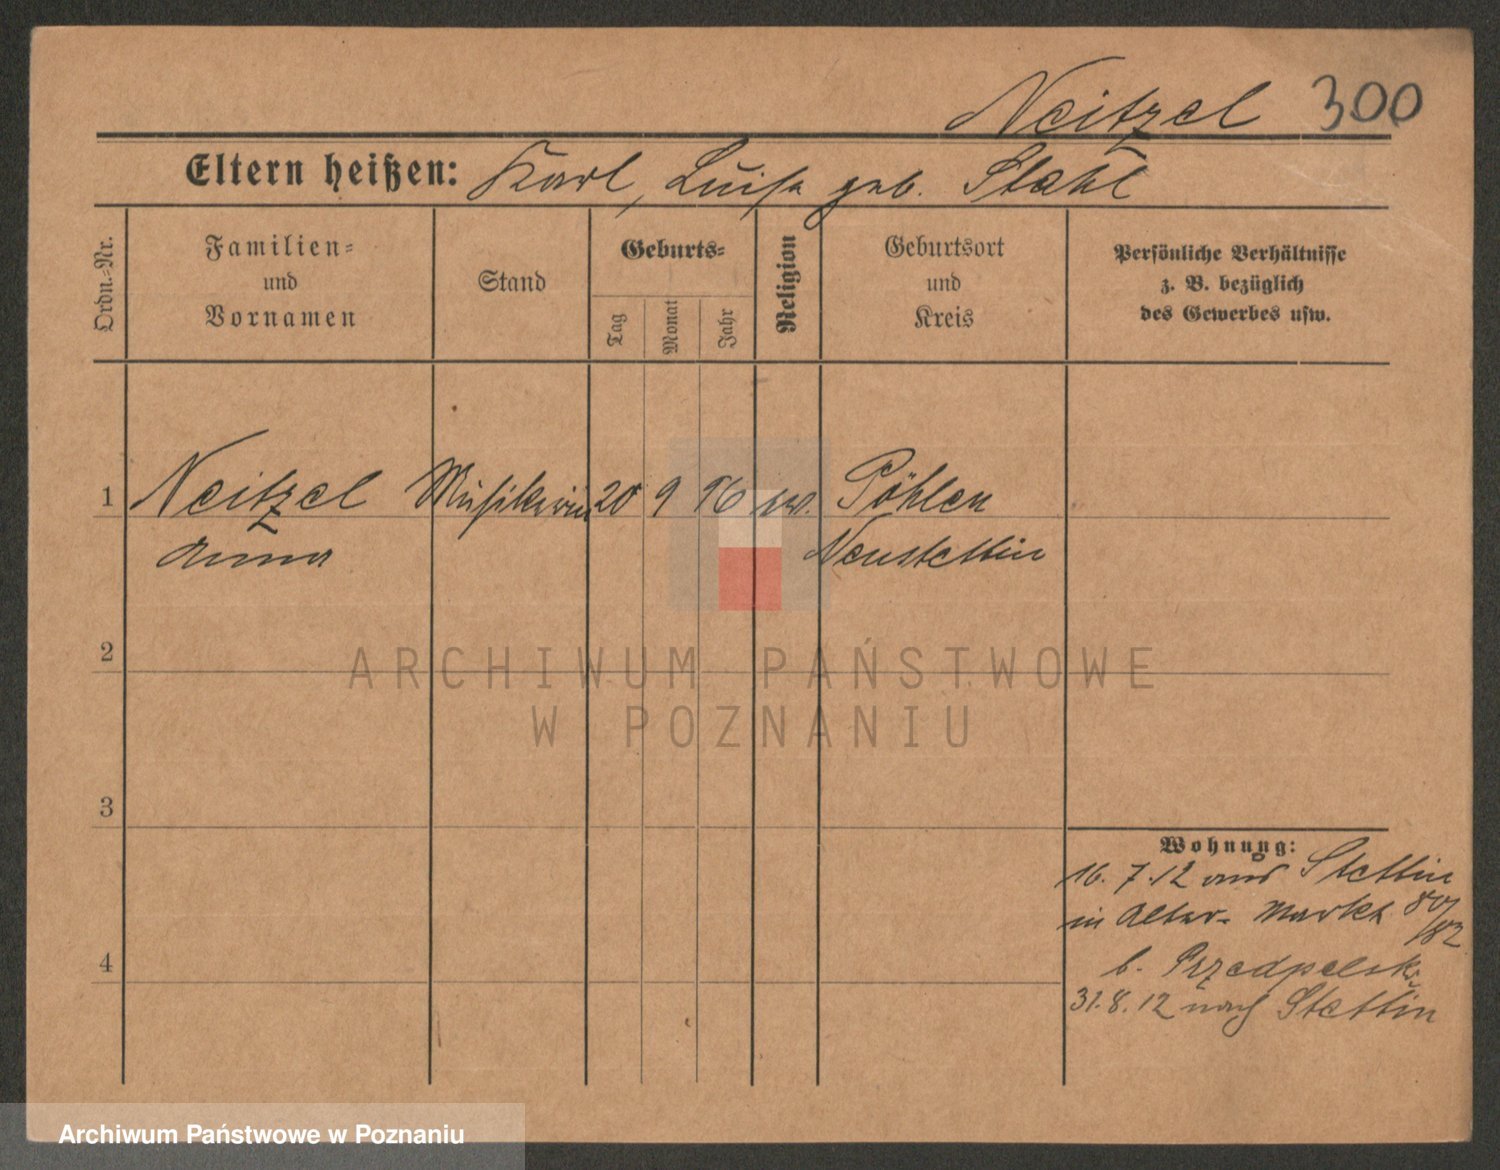 Neitzel 300
Eltern heißen: Karl, Luise geb. Stahl
Ordn.-Nr.
Familien-
und
Vornamen
Stand
Geburts-
Tag
Monat
Jahr
Religion
Geburtsort
und
Kreis
Persönliche Verhältnisse
z. B. bezüglich
des Gewerbes usw.
1 Neitzel 20 9 96 ev. Pöhlen
Anna Neustettin
2
ARCHIWUM PAŃSTWOWE
W POZNANIU
3
Wohnung:
16. 7. 12 aus Stettin
in Alter- Markt 80/82
b. Przedpelski
4
31. 8. 12 nach Stettin
Archiwum Państwowe w Poznaniu